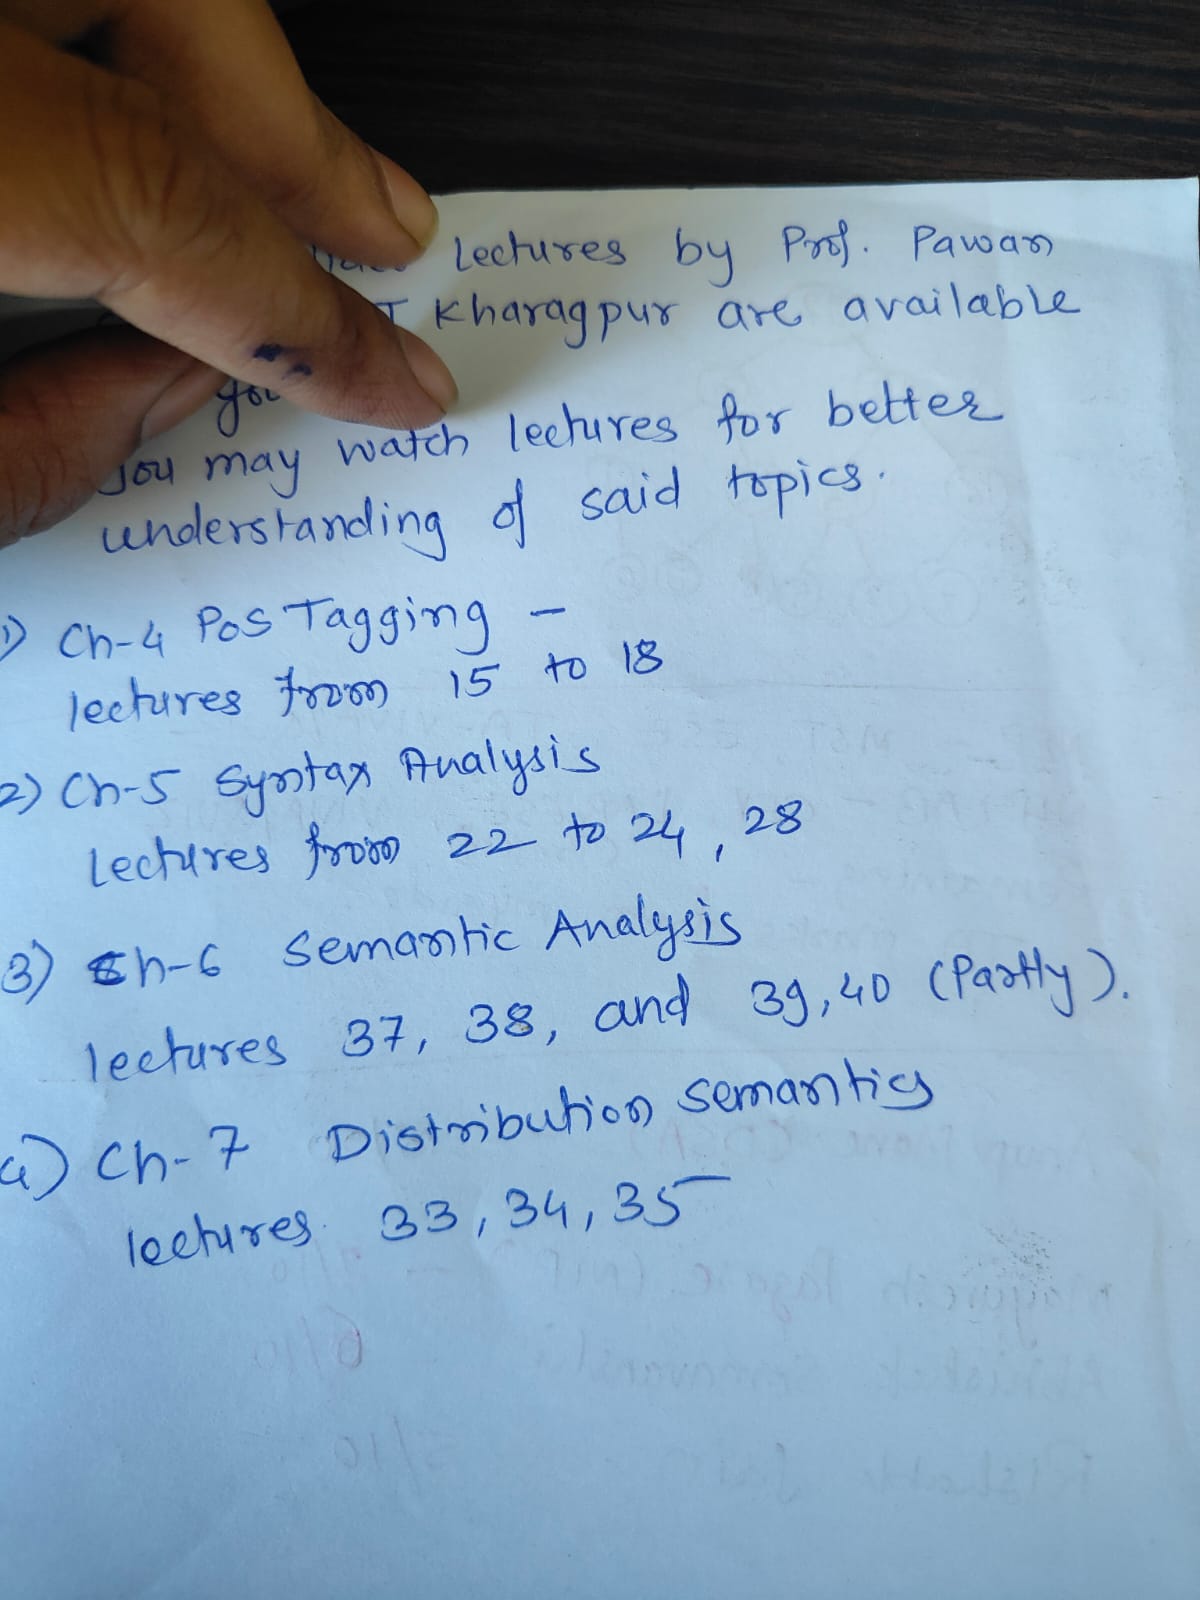 Lectures by Prof. Pawan
Kharagpur are available
you may watch lectures for better
understanding of said topics.
1) Ch-4 PoS Tagging -
lectures from 15 to 18
2) Ch-5 Syntax Analysis
Lectures from 22 to 24, 28
3) Ch-6 Semantic Analysis
lectures 37, 38, and 39,40 (Partly).
4) Ch-7 Distribution Semantics
lectures. 33, 34, 35